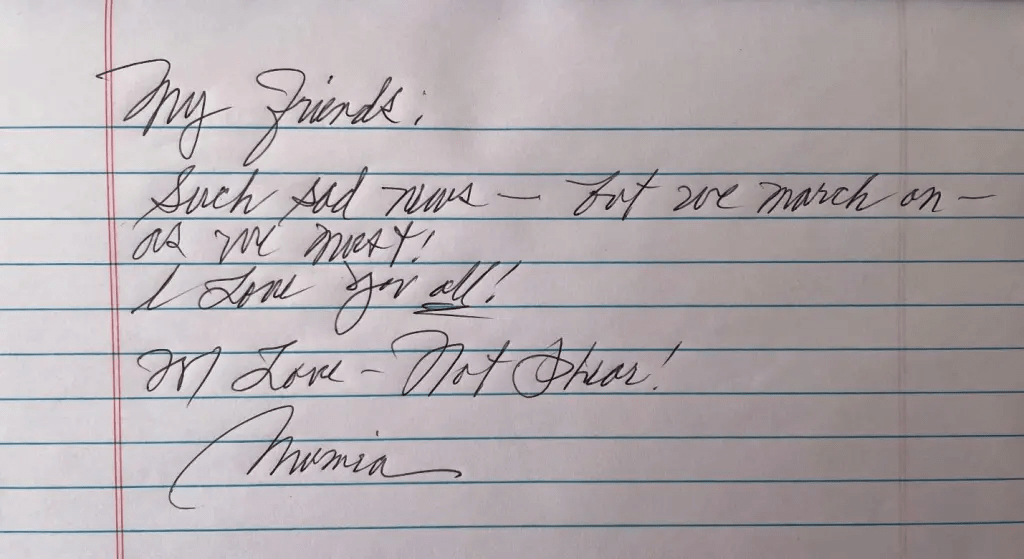 My Friends:
Such sad news — but we march on —
as we must!
I Love You all!
w/ Love – Not Phear!
Mumia